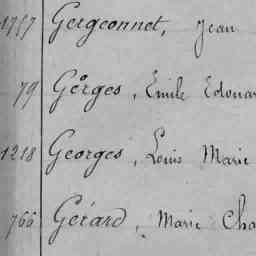 1757 Gergeonnet, Jean
79 Gerges, Emile Edouar
1218 Georges, Louis Marie
766 Gérard, Marie Cha